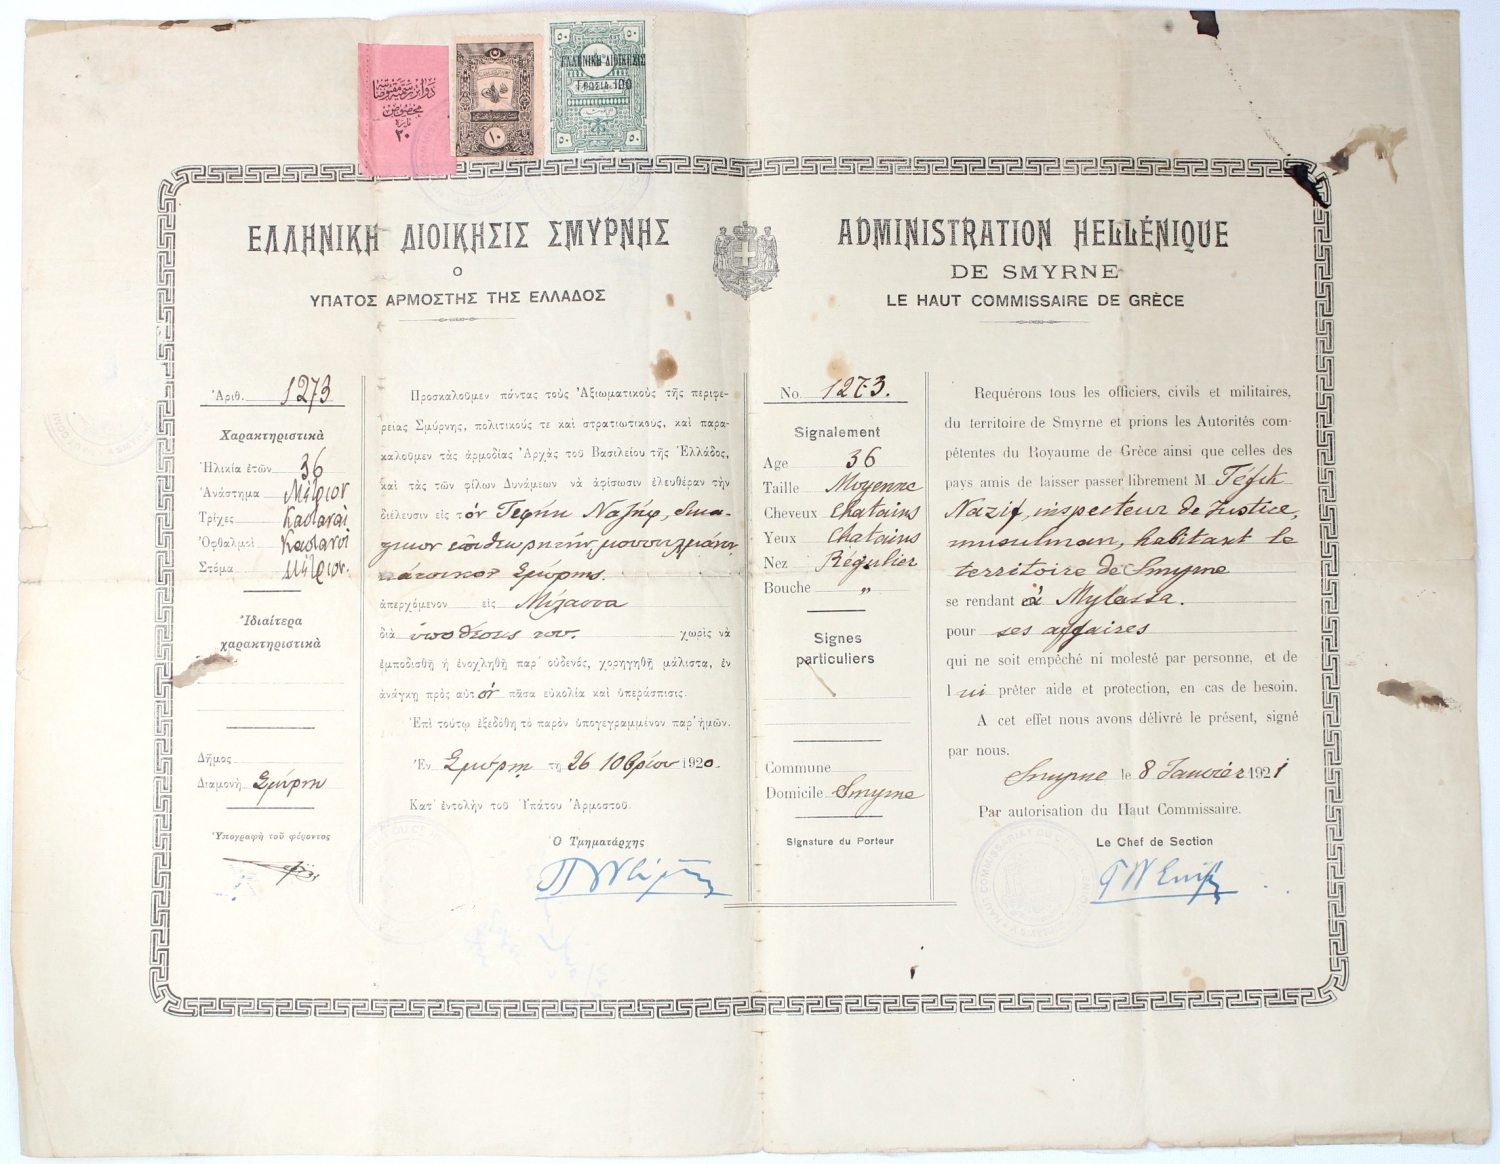 دوائر رسميه مقبوضاتنه
مخصوصدر
پاره
٢٠
١٠
٥٠ ٥٠
ΕΛΛΗΝΙΚΗ ΔΙΟΙΚΗΣΙΣ
ΓΡΟΣΙΑ 100
٥٠ ٥٠
ΕΛΛΗΝΙΚΗ ΔΙΟΙΚΗΣΙΣ ΣΜΥΡΝΗΣ
Ο
ΥΠΑΤΟΣ ΑΡΜΟΣΤΗΣ ΤΗΣ ΕΛΛΑΔΟΣ
Ἀριθ. 1273
Χαρακτηριστικὰ
Ἡλικία ἐτῶν 36
Ἀνάστημα Μέτριον
Τρίχες Κασταναὶ
Ὀφθαλμοὶ Καστανοὶ
Στόμα Μέτριον.
Ἰδιαίτερα
χαρακτηριστικὰ
Δῆμος
Διαμονὴ Σμύρνη
Ὑπογραφὴ τοῦ φέροντος
Προσκαλοῦμεν πάντας τοὺς Ἀξιωματικοὺς τῆς περιφε-
ρείας Σμύρνης, πολιτικούς τε καὶ στρατιωτικούς, καὶ παρα-
καλοῦμεν τὰς ἁρμοδίας Ἀρχὰς τοῦ Βασιλείου τῆς Ἑλλάδος,
καὶ τὰς τῶν φίλων Δυνάμεων νὰ ἀφίσωσιν ἐλευθέραν τὴν
διέλευσιν εἰς τὸν Τεφὴκ Ναζὴφ, δικα-
στικὸν ἐπιθεωρητὴν, μουσουλμάνον,
κάτοικον Σμύρνης.
ἀπερχόμενον εἰς Μύλασσα
διὰ ὑποθέσεις του. χωρὶς νὰ
ἐμποδισθῇ ἢ ἐνοχληθῇ παρ' οὐδενός, χορηγηθῇ μάλιστα, ἐν
ἀνάγκῃ πρὸς αὐτὸν πᾶσα εὐκολία καὶ ὑπεράσπισις.
Ἐπὶ τούτῳ ἐξεδόθη τὸ παρὸν ὑπογεγραμμένον παρ' ἡμῶν.
Ἐν Σμύρνῃ τῇ 26 10βρίου 1920.
Κατ' ἐντολὴν τοῦ Ὑπάτου Ἁρμοστοῦ.
Ὁ Τμηματάρχης
ADMINISTRATION HELLÉNIQUE
DE SMYRNE
LE HAUT COMMISSAIRE DE GRÈCE
No. 1273.
Signalement
Age 36
Taille Moyenne
Cheveux Chatains
Yeux Chatains
Nez Régulier
Bouche „
Signes
particuliers
Commune
Domicile Smyrne
Signature du Porteur
Requérons tous les officiers, civils et militaires,
du territoire de Smyrne et prions les Autorités com-
pétentes du Royaume de Grèce ainsi que celles des
pays amis de laisser passer librement M Téfik
Nazif, inspecteur de Justice,
musulman, habitant le
territoire de Smyrne
se rendant à Mylassa.
pour ses affaires
qui ne soit empêché ni molesté par personne, et de
lui prêter aide et protection, en cas de besoin.
A cet effet nous avons délivré le présent, signé
par nous.
Smyrne le 8 Janvier 1921
Par autorisation du Haut Commissaire.
Le Chef de Section